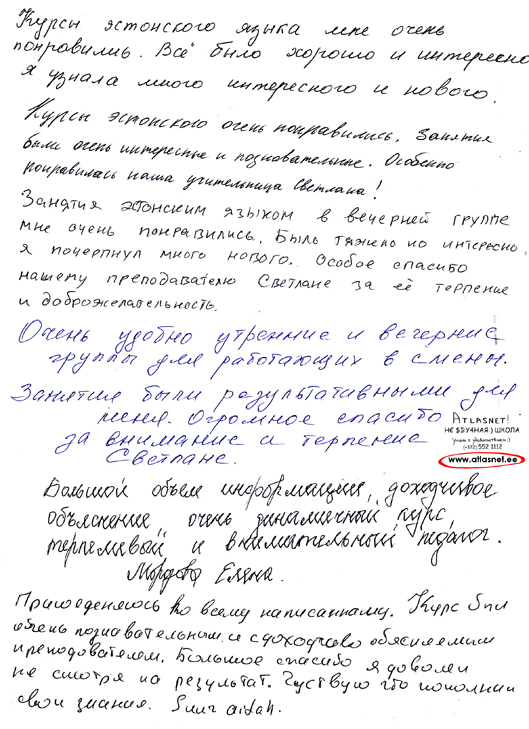 Курсы эстонского языка мне очень
понравились. Всё было хорошо и интересно
я узнала много интересного и нового.
Курсы эстонского очень понравились. Занятия
были очень интересные и познавательные. Особенно
понравилась наша учительница Светлана!
Занятия эстонским языком в вечерней группе
мне очень понравились. Было тяжело но интересно
я почерпнул много нового. Особое спасибо
нашему преподавателю Светлане за её терпение
и доброжелательность.
Очень удобно утренние и вечерние
группы для работающих в смены.
Занятия были результативными для
меня. Огромное спасибо
за внимание и терпение
Светлане.
ATLASNET!
НЕ $ 0 У 4НАЯ :) ШКОЛА
Учим с удовольствием :)
(+372) 552 1112
www.atlasnet.ee
Большой объем информации, доходчивое
объяснение, очень динамичный курс,
терпеливый и внимательный педагог.
Елена.
Присоеденяюсь ко всему написанному. Курс был
очень познавательным и с доходчиво обясняемым
преподователем. Большое спасибо я доволен
не смотря на результат. Чуствую что пополнил
свои знания. Suur aitäh.